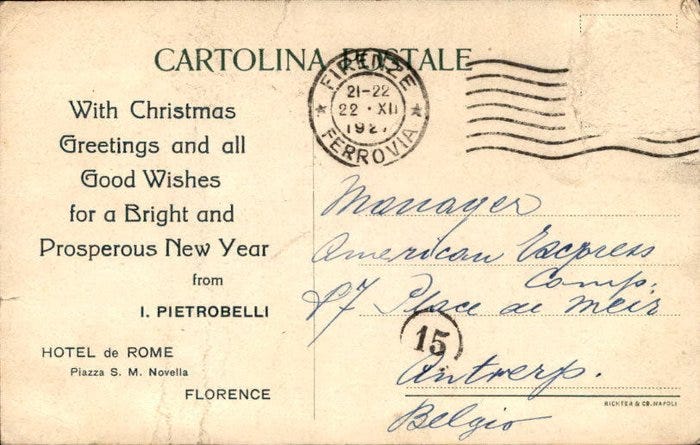 CARTOLINA POSTALE
FIRENZE
21-22
22 · XII
192
FERROVIA
With Christmas
Greetings and all
Good Wishes
for a Bright and
Prosperous New Year
from
I. PIETROBELLI
HOTEL de ROME
Piazza S. M. Novella
FLORENCE
Manager
American Express
Comp.
87 Place de Meir
15
Antwerp.
Belgio
RICHTER & CO. NAPOLI